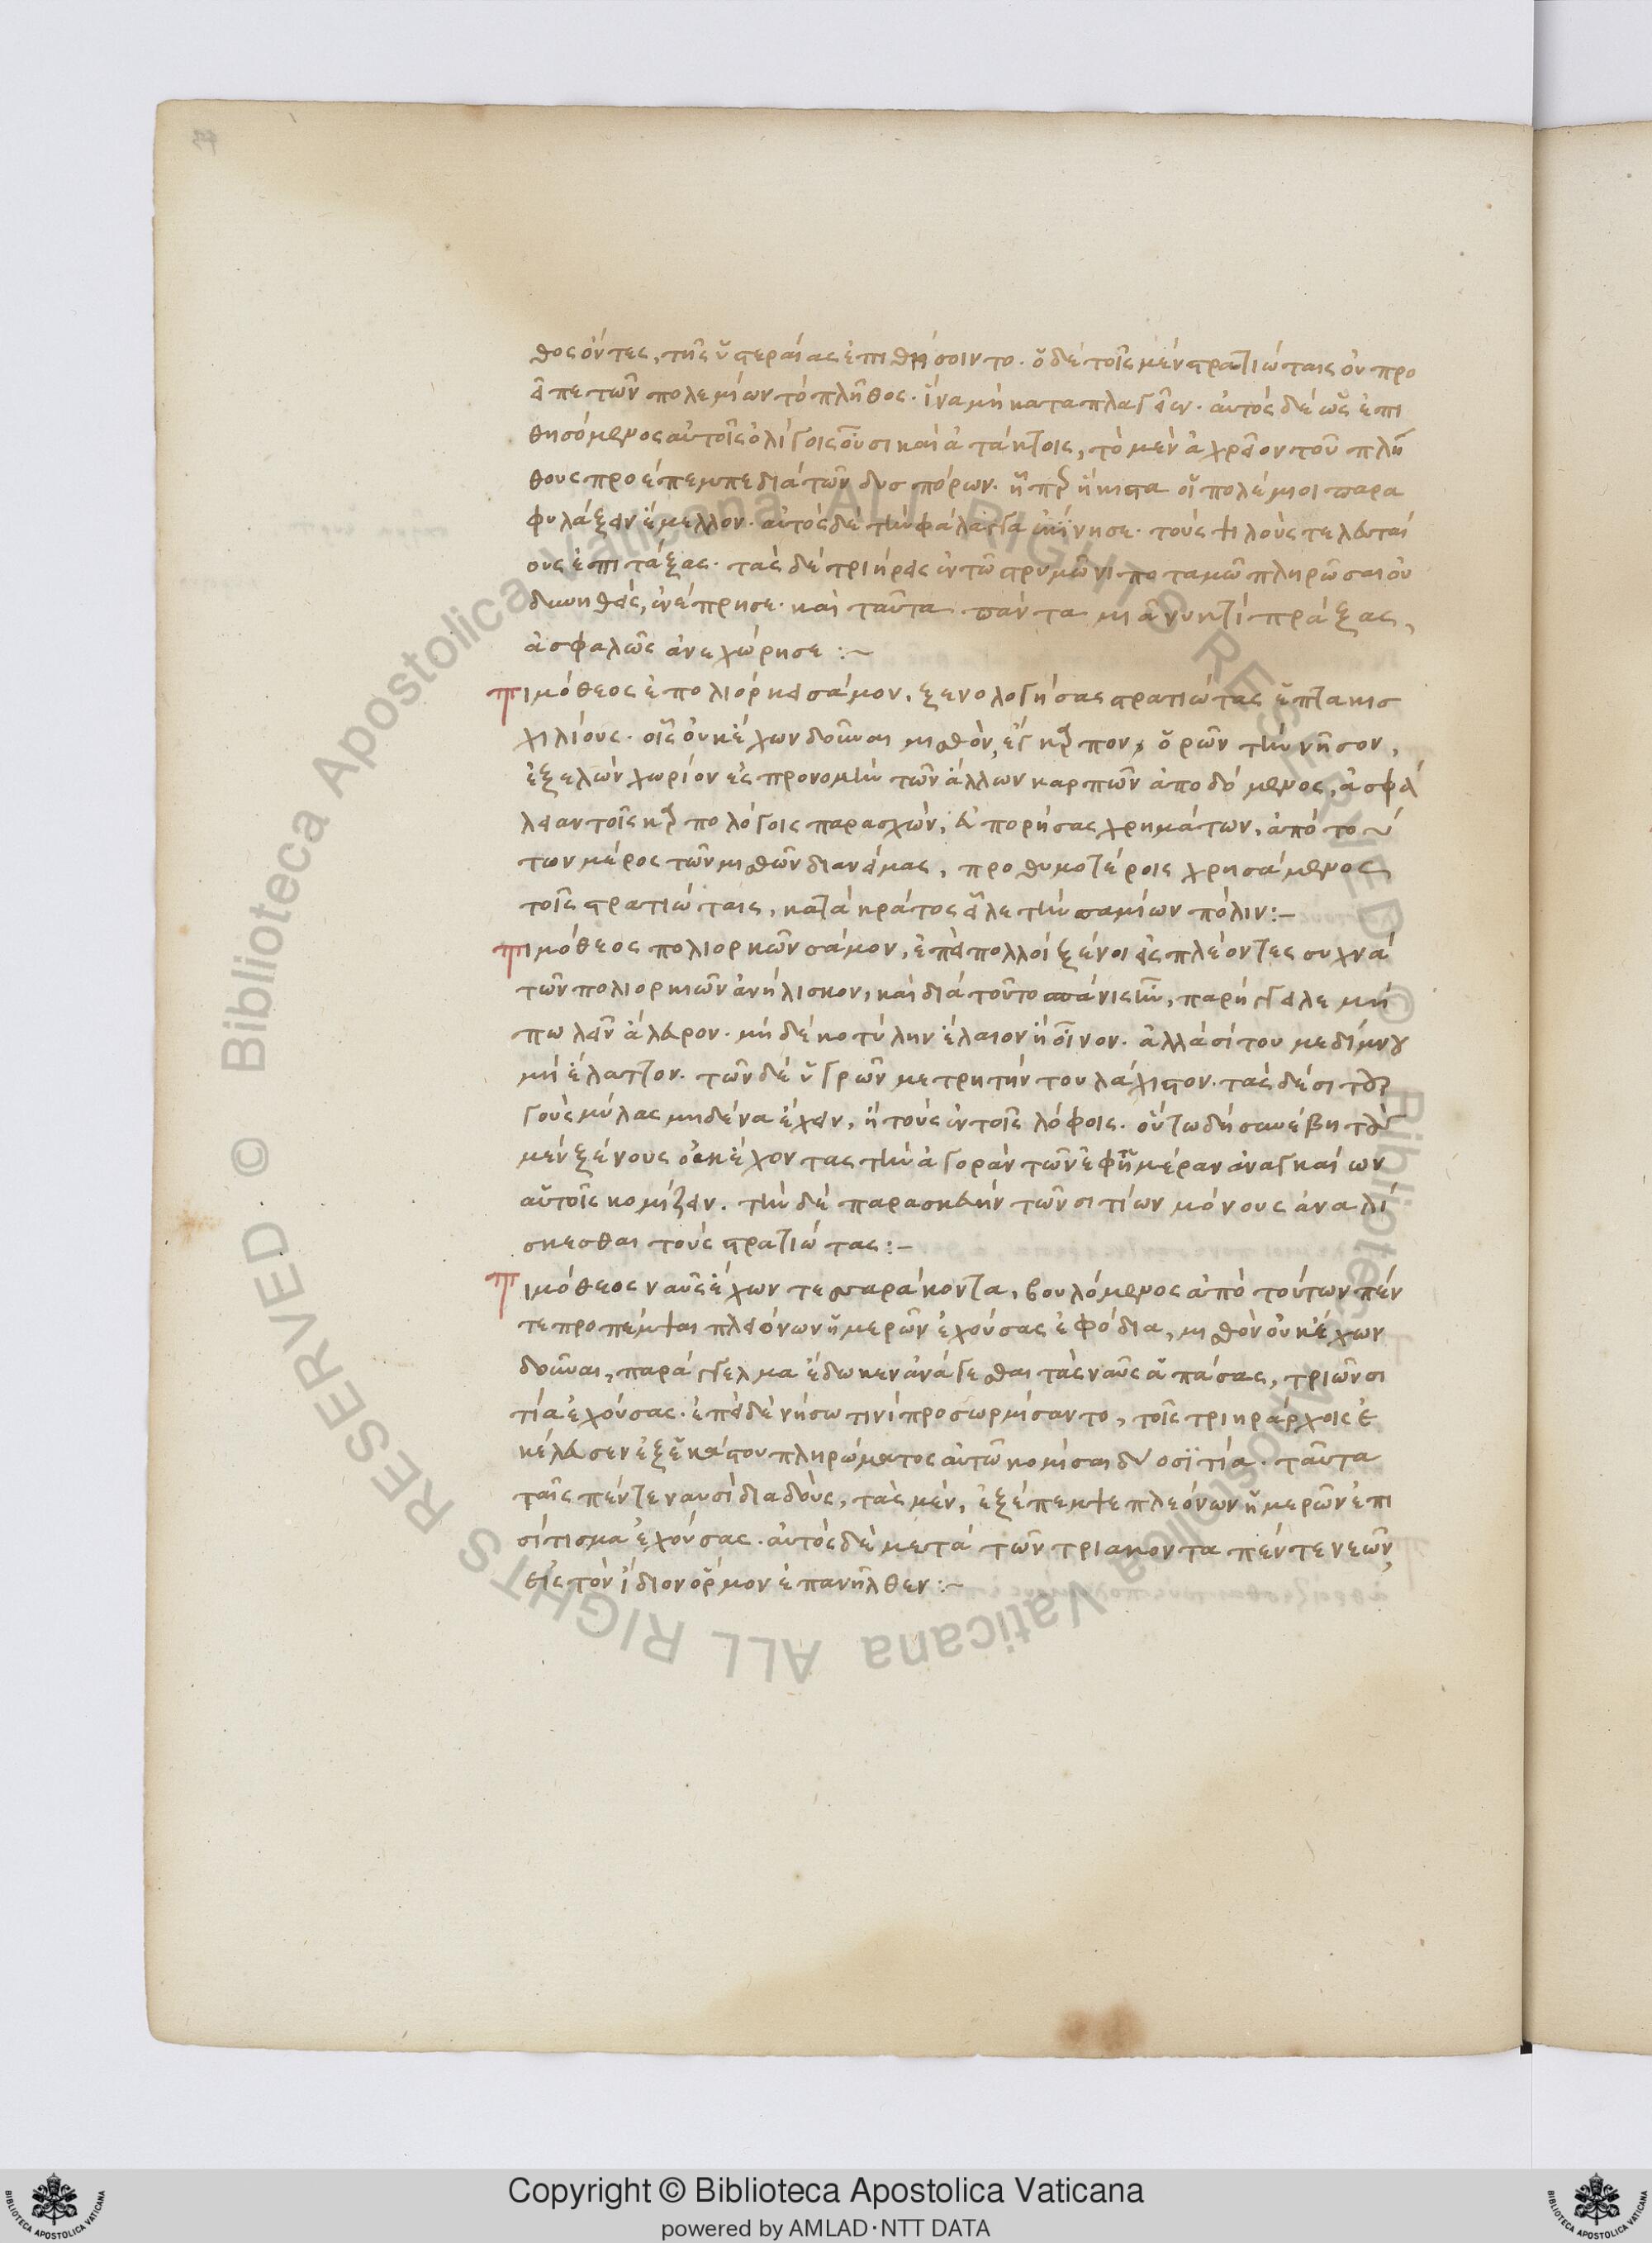 θος ὄντες, τῆς ὑστεραίας ἐπιθήσοιντο. ὁ δὲ τοῖς μὲν στρατιώταις οὐ προ
εῖπε τῶν πολεμίων τὸ πλῆθος. ἵνα μὴ καταπλαγεῖεν. αὐτὸς δὲ ὡς ἐπι
θησόμενος αὐτοῖς ὀλίγοις οὖσι καὶ ἀτάκτοις, τὸ μὲν ἀχρεῖον τοῦ πλή
θους προέπεμπε διὰ τῶν δυσπόρων. ἥπερ ἥκιστα οἱ πολέμιοι παρα
φυλάξειν ἔμελλον. αὐτὸς δὲ τὴν φάλαγγα ἐκίνησε. τοὺς ψιλοὺς τελευταί
ους ἐπιτάξας. τὰς δὲ τριήρεις ἐν τῶ στρυμῶνι ποταμῶ πληρῶσαι οὐ
δυνηθείς, ἐνέπρησε. καὶ ταῦτα πάντα μιᾶ νυκτὶ πράξας,
ἀσφαλῶς ἀνεχώρησε :~
Τιμόθεος ἐπολιόρκει σάμον, ξενολογήσας στρατιώτας ἑπτακισ
χιλίους. οἷς οὐκ ἔχων δοῦναι μισθὸν, εὔκαρπον ὁρῶν τὴν νῆσον,
ἐξελὼν χωρίον ἐς προνομὴν τῶν ἄλλων καρπῶν ἀποδόμενος, ἀσφά
λειαν τοῖς καρπολόγοις παρασχών, εὐπορήσας χρημάτων, ἀπὸ τού
των μέρος τῶν μισθῶν διανείμας, προθυμοτέροις χρησάμενος
τοῖς στρατιώταις, κατὰ κράτος εἷλε τὴν σαμίων πόλιν:–
Τιμόθεος πολιορκῶν σάμον, ἐπεὶ πολλοὶ ξένοι εἰσπλέοντες συχνὰ
τῶν πολιορκιῶν ἀνήλισκον, καὶ διὰ τοῦτο σπάνις ἦν, παρήγγειλε μὴ
πωλεῖν ἄλευρον. μὴ δὲ κοτύλην ἔλαιον ἢ οἶνον. ἀλλὰ σίτου μεδίμνου
μὴ ἔλαττον. τῶν δὲ ὑγρῶν μετρητὴν τοὐλάχιστον. τὰς δὲ σιτουρ
γοὺς μύλας μηδένα ἔχειν, ἢ τοὺς ἐν τοῖς λόφοις. οὕτω δὴ συνέβη τοὺς
μὲν ξένους οὐκ ἔχοντας τὴν ἀγορὰν τῶν ἐφ' ἡμέραν ἀναγκαίων
αὑτοῖς κομίζειν. τὴν δὲ παρασκευὴν τῶν σιτίων μόνους ἀναλί
σκεσθαι τοὺς στρατιώτας:–
Τιμόθεος ναῦς ἔχων τεσσαράκοντα, βουλόμενος ἀπὸ τούτων πέν
τε προπέμψαι πλειόνων ἡμερῶν ἐχούσας ἐφόδια, μισθὸν οὐκ ἔχων
δοῦναι, παράγγελμα ἔδωκεν ἀνάγεσθαι τὰς ναῦς ἁπάσας, τριῶν σι
τία ἐχούσας. ἐπεὶ δὲ νήσω τινὶ προσωρμίσαντο, τοῖς τριηράρχοις ἐ
κέλευσεν ἐξ ἑκάστου πληρώματος αὐτῶ κομίσαι δυοσιτία. ταῦτα
ταῖς πέντε ναυσὶ διαδοὺς, τὰς μὲν, ἐξέπεμψε πλεόνων ἡμερῶν ἐπι
σίτισμα ἐχούσας. αὐτὸς δὲ μετὰ τῶν τριακοντα πέντε νεῶν
εἰς τὸν ἴδιον ὅρμον ἐπανῆλθεν:~
© Biblioteca Apostolica Vaticana ALL RIGHTS RESERVED
© Biblioteca Apostolica Vaticana ALL RIGHTS RESERVED
Copyright © Biblioteca Apostolica Vaticana
powered by AMLAD·NTT DATA
BIBLIOTECA APOSTOLICA VATICANA
BIBLIOTECA APOSTOLICA VATICANA